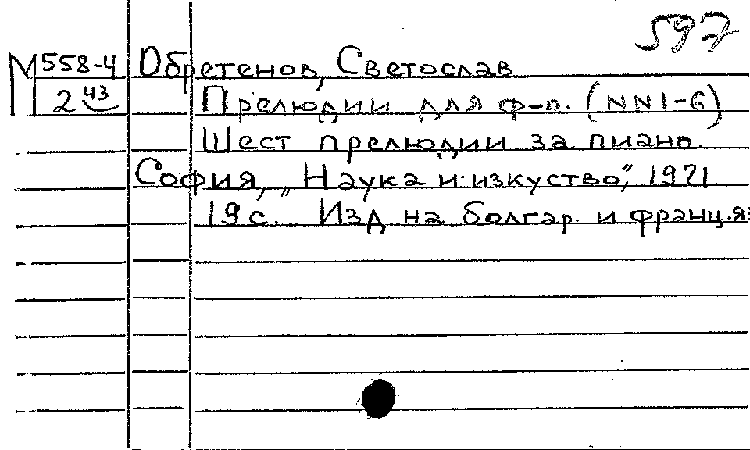 597
М 558-4 Обретенов, Светослав
2 43 Прелюдии для ф-п. (NN1-6)
Шест прелюдии за пиано.
София, „Наука и изкуство“, 1971
19 с. Изд на болгар. и франц. яз